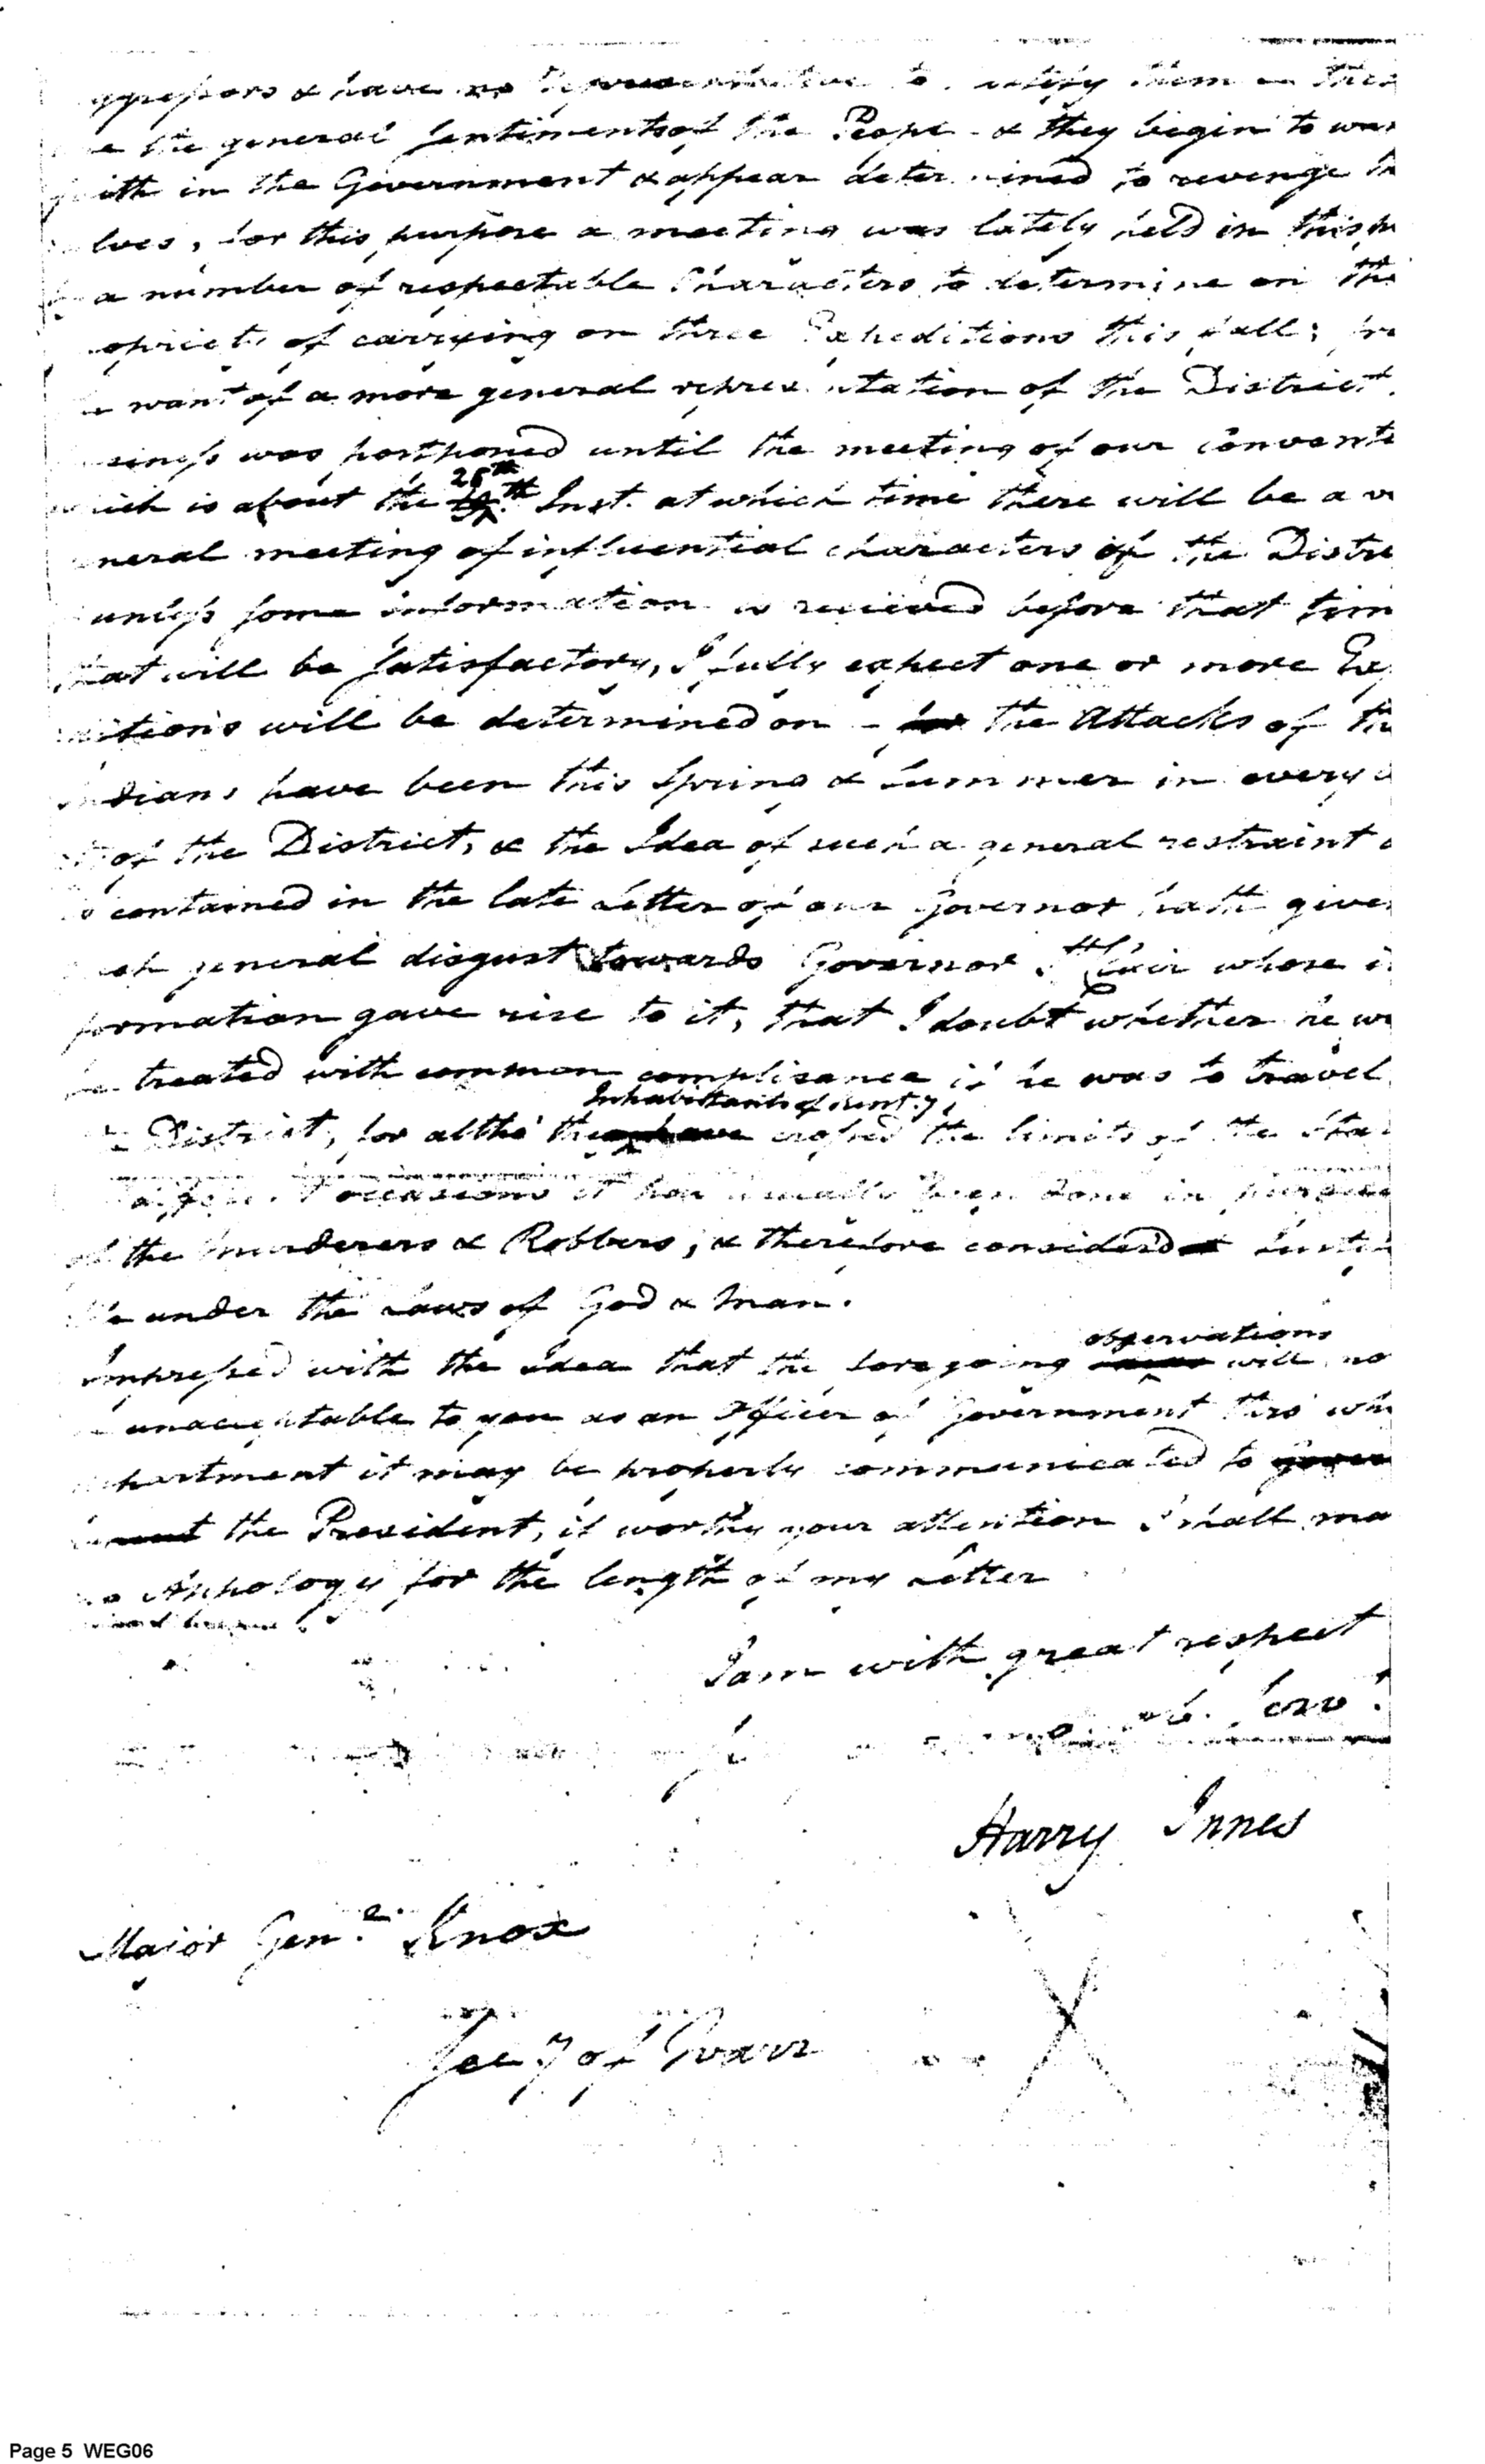 & have no to them
the general sentiments of the People - & they begin to wa
ith in the Government & appear deter ined to revenge th
lves, for this purpose a meeting was lately held in this
a number of respectable Characters to determine on the
opriety of carrying on three Expeditions this fall;
want of a more general repres ntation of the District
siness was postponed until the meeting of our Conventi
ich is about the 26th th Inst. at which time there will be a
neral meeting of influential characters of the Distri
unless some information is recieved before that tim
hat will be satisfactory, I fully expect one or more Ex
itions will be determined on - the Attacks of th
ndians have been this Spring & Summer in every
of the District, & the Idea of such a general restraint
contained in the late Letter of our Governor hath give
general disgust towards Governor St Clair whose i
formation gave rise to it, that I doubt whether he w
treated with common complisance if he was to travel
Inhabitants of Kenty
District, for altho' the crossed the limits of the Sta
occasions it has usually been done in
the murderers & Robbers, & therefore considerd
under the Laws of God & Man.
observations
Impressed with the Idea that the foregoing will no
unacceptable to you as an Officer of Government thro' wh
partment it may be properly communicated to
the President, if worthy your attention I shall ma
no Appology for the length of my Letter
I am with great respect
Harry Innes
Major Genl. Knox
Secy of War
Page 5 WEG06